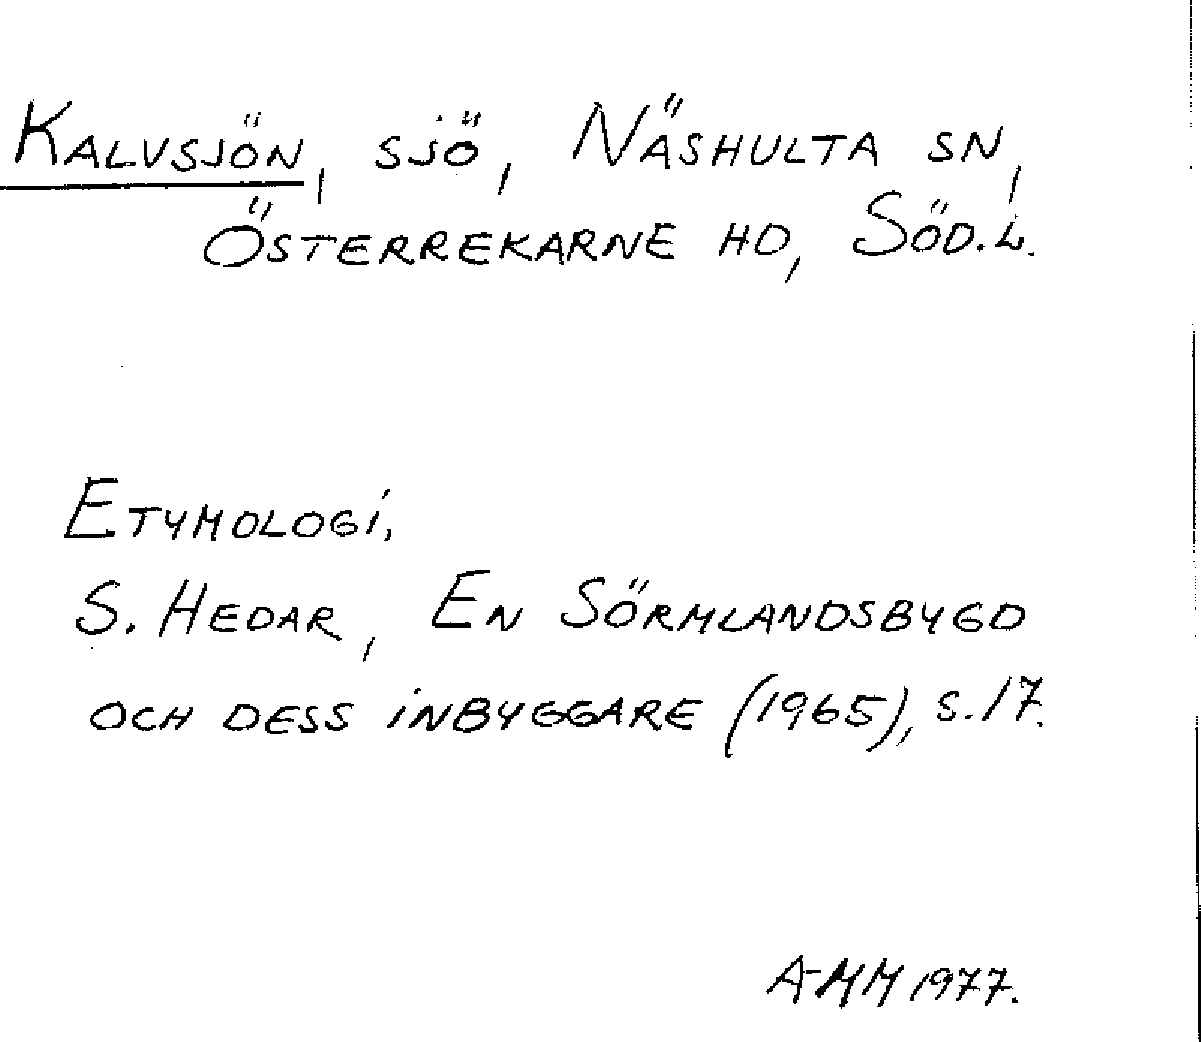 Kalvsjön, sjö, Näshulta sn,
Österrekarne hd, Söd.l.
Etymologi.
S. Hedar, En Sörmlandsbygd
och dess inbyggare (1965), s. 17.
A-MM 1977.